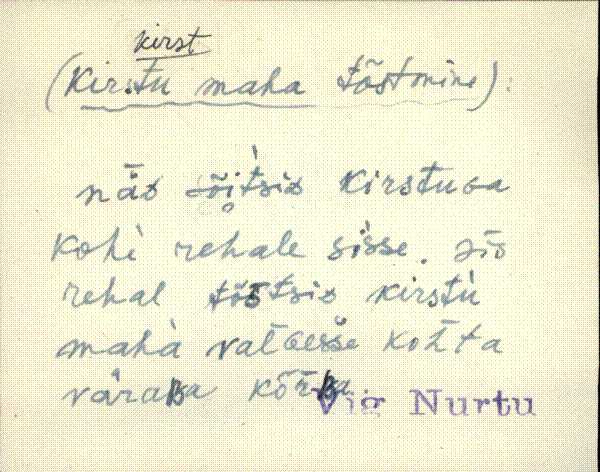 kirst
(Kirstu maha tõstmine).
näd sõitsid kirstuga
kohe rehale sisse. siis
rehal tõstsid kirstu
maha valGesse kohta
väraBa kõrBa
Vig Nurtu